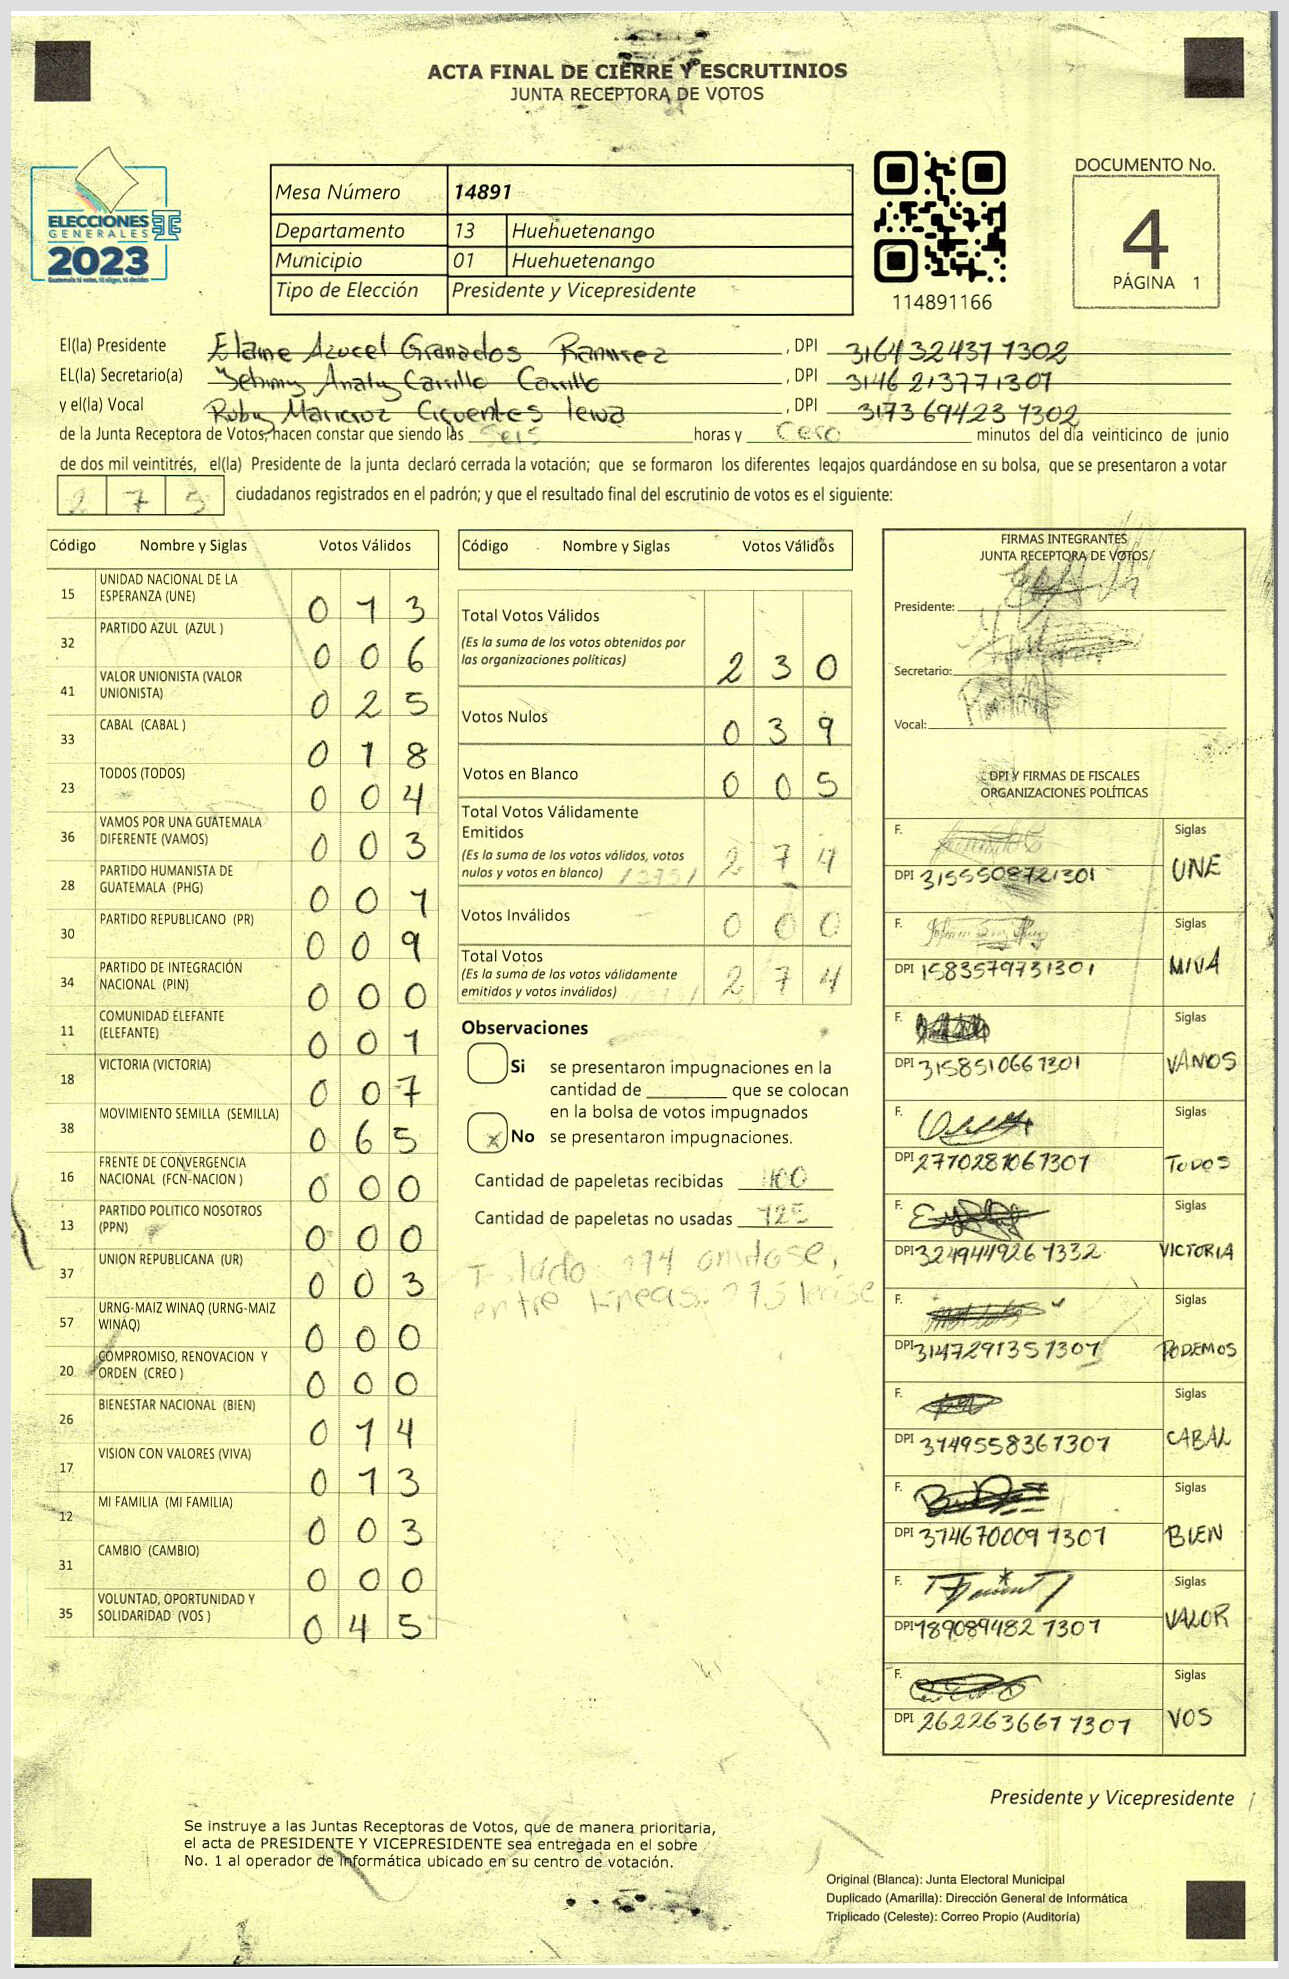 ACTA FINAL DE CIERRE Y ESCRUTINIOS
JUNTA RECEPTORA DE VOTOS
ELECCIONES
GENERALES
2023
Mesa Número 14891
Departamento 13 Huehuetenango
Municipio 01 Huehuetenango
Tipo de Elección Presidente y Vicepresidente
114891166
DOCUMENTO No.
4
PÁGINA 1
El(la) Presidente Elaine Azucel Granados Ramirez, DPI 3164324371302
EL(la) Secretario(a) Analy Carrillo Carrillo, DPI 3146213771301
y el(la) Vocal Ruby Maricruz Cifuentes, DPI 3173694231302
de la Junta Receptora de Votos, hacen constar que siendo las Seis horas y Cero minutos del día veinticinco de junio
de dos mil veintitrés, el(la) Presidente de la junta declaró cerrada la votación; que se formaron los diferentes legajos guardándose en su bolsa, que se presentaron a votar
275 ciudadanos registrados en el padrón; y que el resultado final del escrutinio de votos es el siguiente:
Código Nombre y Siglas Votos Válidos
15 UNIDAD NACIONAL DE LA ESPERANZA (UNE) 013
32 PARTIDO AZUL (AZUL ) 006
41 VALOR UNIONISTA (VALOR UNIONISTA) 025
33 CABAL (CABAL ) 018
23 TODOS (TODOS) 004
36 VAMOS POR UNA GUATEMALA DIFERENTE (VAMOS) 003
28 PARTIDO HUMANISTA DE GUATEMALA (PHG) 001
30 PARTIDO REPUBLICANO (PR) 009
34 PARTIDO DE INTEGRACIÓN NACIONAL (PIN) 000
11 COMUNIDAD ELEFANTE (ELEFANTE) 001
18 VICTORIA (VICTORIA) 007
38 MOVIMIENTO SEMILLA (SEMILLA) 065
16 FRENTE DE CONVERGENCIA NACIONAL (FCN-NACION ) 000
13 PARTIDO POLITICO NOSOTROS (PPN) 000
37 UNION REPUBLICANA (UR) 003
57 URNG-MAIZ WINAQ (URNG-MAIZ WINAQ) 000
20 COMPROMISO, RENOVACION Y ORDEN (CREO ) 000
26 BIENESTAR NACIONAL (BIEN) 014
17 VISION CON VALORES (VIVA) 013
12 MI FAMILIA (MI FAMILIA) 003
31 CAMBIO (CAMBIO) 000
35 VOLUNTAD, OPORTUNIDAD Y SOLIDARIDAD (VOS ) 045
Código Nombre y Siglas Votos Válidos
Total Votos Válidos 230
(Es la suma de los votos obtenidos por
las organizaciones políticas)
Votos Nulos 039
Votos en Blanco 005
Total Votos Válidamente
Emitidos 274
(Es la suma de los votos válidos, votos
nulos y votos en blanco)
Votos Inválidos 000
Total Votos 274
(Es la suma de los votos válidamente
emitidos y votos inválidos)
Observaciones
Si se presentaron impugnaciones en la
cantidad de ________ que se colocan
en la bolsa de votos impugnados
x No se presentaron impugnaciones.
Cantidad de papeletas recibidas 400
Cantidad de papeletas no usadas 125
274 omitase,
entre lineas: 275 léase
FIRMAS INTEGRANTES
JUNTA RECEPTORA DE VOTOS
Presidente:
Secretario:
Vocal:
DPI Y FIRMAS DE FISCALES
ORGANIZACIONES POLÍTICAS
F. Siglas
DPI 3155508721301 UNE
F. Siglas
DPI 1583579731301 MIVA
F. Siglas
DPI 3158510661301 VAMOS
F. Siglas
DPI 2770281061301 TODOS
F. Siglas
DPI 3249449261332 VICTORIA
F. Siglas
DPI 3147291351301 PODEMOS
F. Siglas
DPI 3149558361301 CABAL
F. Siglas
DPI 3146700091301 BIEN
F. Siglas
DPI 1890894821301 VALOR
F. Siglas
DPI 2622636611301 VOS
Presidente y Vicepresidente
Se instruye a las Juntas Receptoras de Votos, que de manera prioritaria,
el acta de PRESIDENTE Y VICEPRESIDENTE sea entregada en el sobre
No. 1 al operador de informática ubicado en su centro de votación.
Original (Blanca): Junta Electoral Municipal
Duplicado (Amarilla): Dirección General de Informática
Triplicado (Celeste): Correo Propio (Auditoría)